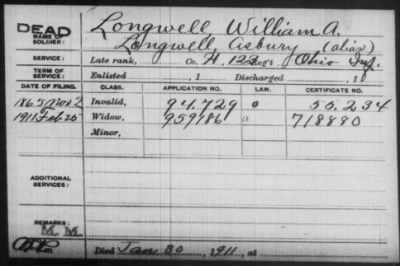 DEAD Longwell, William A.
NAME OF SOLDIER: Longwell, Asbury (alias)
SERVICE: Late rank, Co. H, 12 Reg't Ohio Inf.
TERM OF SERVICE: Enlisted , 1 Discharged , 1
DATE OF FILING. CLASS. APPLICATION NO. LAW. CERTIFICATE NO.
1865 Nov 2 Invalid, 94.729 50.234
1911 Feb 25 Widow, 959786 718880
Minor,
ADDITIONAL SERVICES:
REMARKS: M M
Died Jan 30, 1911, at